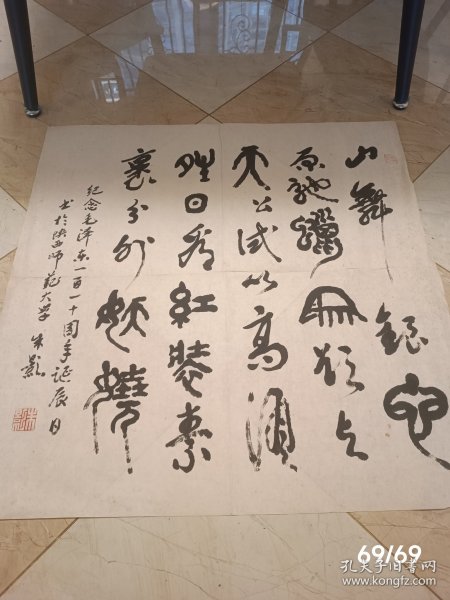 山舞銀蛇
原馳蠟象欲与
天公試比高須
晴日看紅裝素
裹分外妖嬈
紀念毛泽东一百一十周年誕辰日
书於陕西师范大学 朱影
69/69
孔夫子旧书网
www.kongfz.com